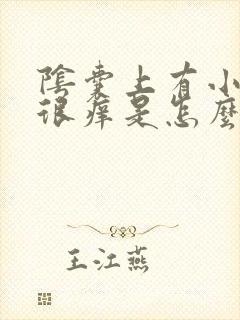 陰囊上有小
很痒是怎麽
王江燕